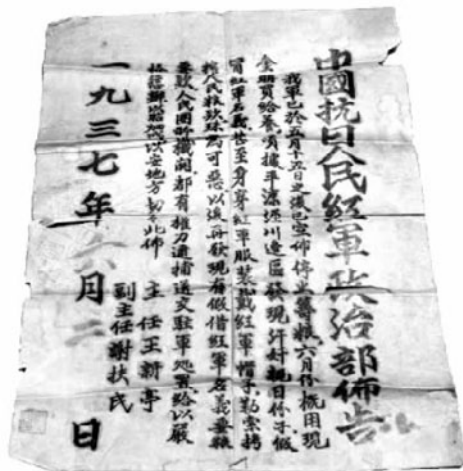 中國抗日人民紅軍政治部佈告
我軍已於五月十五日之後已宣佈停止籌粮六月份概用現
金購買給養頃據平涼涇川邊區發現汗奸親日份子假
冒紅軍名義甚至身穿紅軍服裝戴紅軍帽子勒索拷
人民粮殊為可惡以後再發現有假借紅軍名義要粮
要欵人民團防機關都有權力逮捕送交駐軍处置給以嚴
格懲辦以安地方切切此佈
主任王新亭
副主任謝扶民
一九三七年六月二日